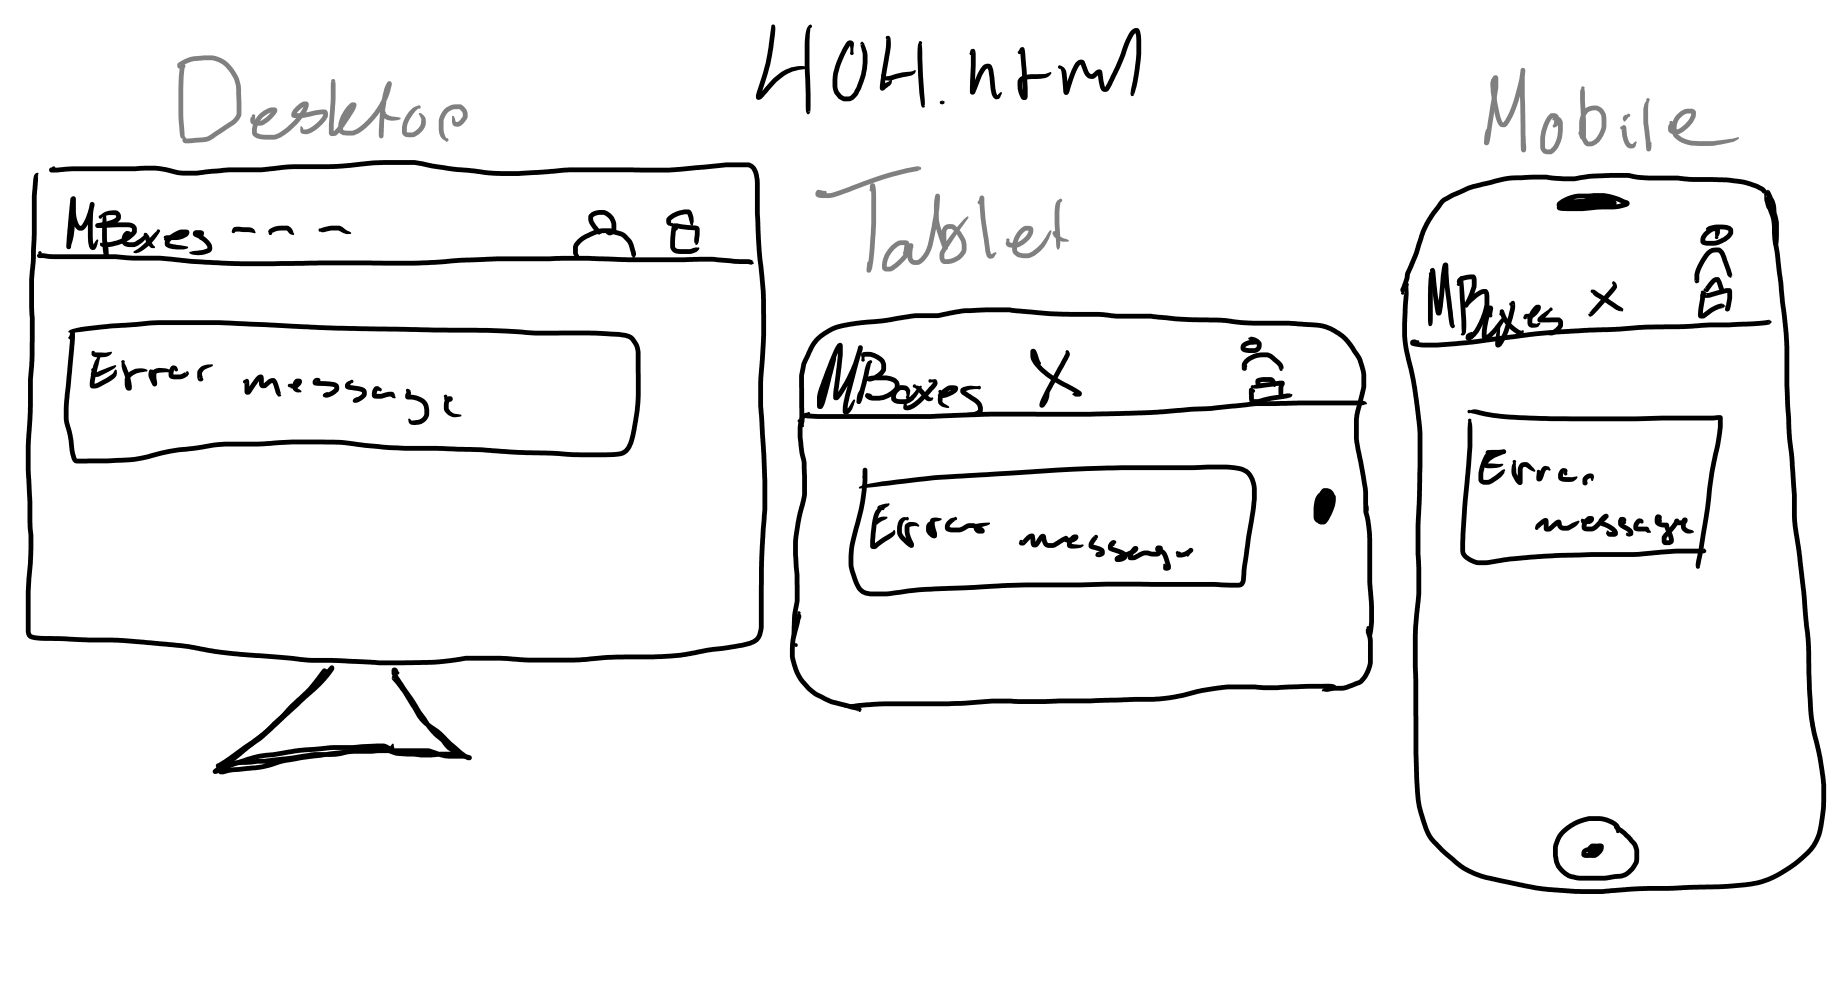 404.html
Desktop
MBoxes
Error message
Tablet
MBoxes X
Error message
Mobile
MBoxes X
Error
message